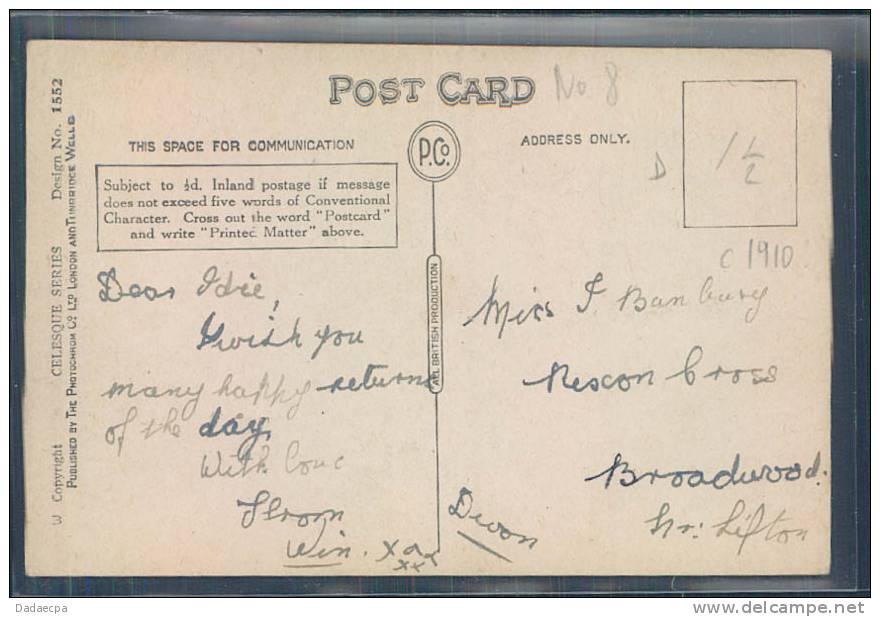 POST CARD
No 8
THIS SPACE FOR COMMUNICATION
P.Co.
ADDRESS ONLY.
Subject to ½d. Inland postage if message
does not exceed five words of Conventional
Character. Cross out the word "Postcard"
and write "Printed Matter" above.
D
1/2
c 1910
Dear
I wish you
many happy returns
of the day,
With love
From
Win. x x x
x x
Miss I. Banbury
Rescon Cross
Broadwood.
Nr: Lifton
Devon
ALL BRITISH PRODUCTION
3 Copyright CELESQUE SERIES Design No. 1552
PUBLISHED BY THE PHOTOCHROM CO. LTD LONDON AND TUNBRIDGE WELLS
Dadaecpa
www.delcampe.net